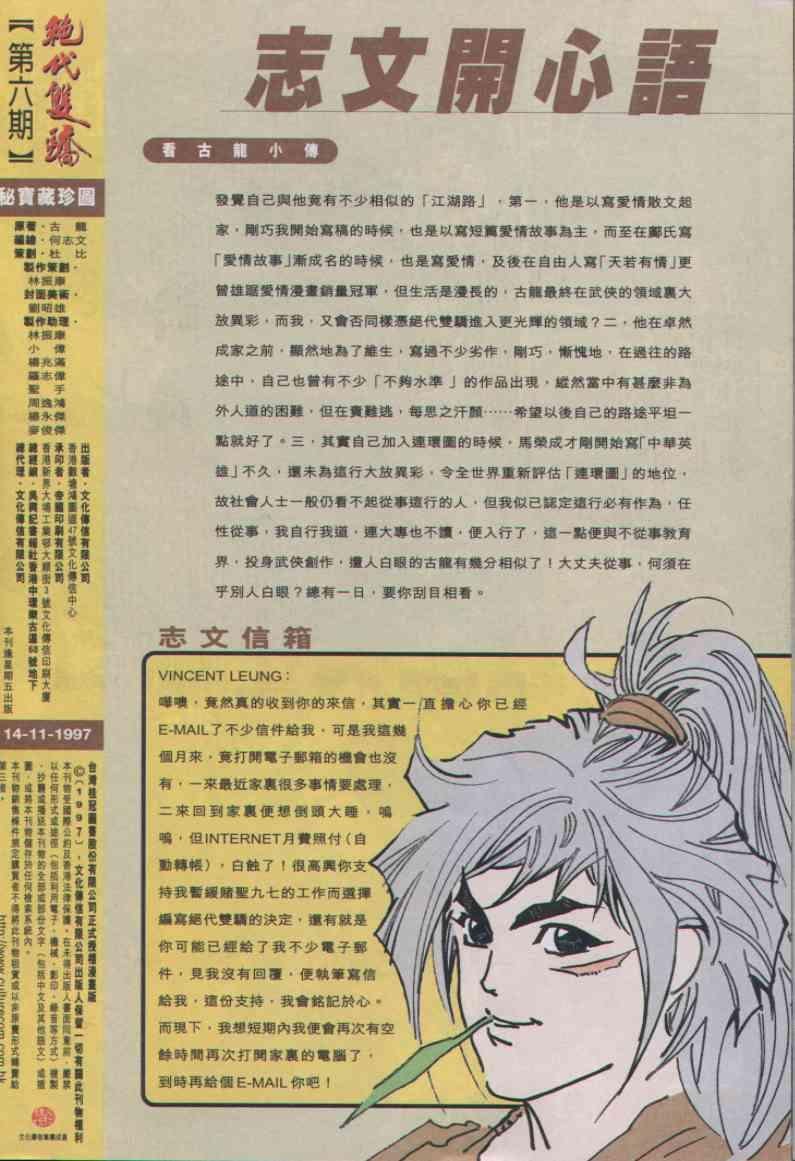 絕代雙驕
【第六期】
秘寶藏珍圖
原著·古龍
編繪·何志文
策劃·杜比
製作策劃·
林振康
封面美術·
劉昭雄
製作助理·
林振康
小偉
楊兆滿
羅志偉
聖手
周逸鴻
楊永傑
麥俊傑
出版者·文化傳信有限公司
香港觀塘鴻圖道47號文化傳信中心
承印者·帝國印刷有限公司
香港新界大埔工業邨大順街3號文化傳信印刷大廈
總經銷·吳興記書報社香港中環樂古道68號地下
總代理·文化傳信有限公司
本刊逢星期五出版
14-11-1997
台灣桂冠圖書股份有限公司正式授權漫畫版
©(1997)，文化傳信有限公司出版人保留一切有關此刊物權利
本刊物受國際公約及香港法律保護。在未得出版人書面同意前，嚴禁
以任何形式或途徑（包括利用電子，機械，影印，錄音等方式）複製
，抄襲或播送本刊物的全部或部份文字（包括中文及其他語文）或插
圖，或將本刊物儲存於任何檢索系統內。
本刊物銷售條件規定購買者不得將此刊物租賃或以非原裝形式轉賣給
第三者。
http://www.culturecom.com.hk
文化傳信集團成員
志文開心語
看古龍小傳
發覺自己與他竟有不少相似的「江湖路」，第一，他是以寫愛情散文起
家，剛巧我開始寫稿的時候，也是以寫短篇愛情故事為主，而至在鄺氏寫
「愛情故事」漸成名的時候，也是寫愛情，及後在自由人寫「天若有情」更
曾雄踞愛情漫畫銷量冠軍，但生活是漫長的，古龍最終在武俠的領域裏大
放異彩，而我，又會否同樣憑絕代雙驕進入更光輝的領域？二，他在卓然
成家之前，顯然地為了維生，寫過不少劣作，剛巧，慚愧地，在過往的路
途中，自己也曾有不少「不夠水準 」的作品出現，縱然當中有甚麼非為
外人道的困難，但在責難逃，每思之汗顏⋯⋯希望以後自己的路途平坦一
點就好了。三，其實自己加入連環圖的時候，馬榮成才剛開始寫「中華英
雄」不久，還未為這行大放異彩，令全世界重新評估「連環圖」的地位，
故社會人士一般仍看不起從事這行的人，但我似已認定這行必有作為，任
性從事，我自行我道，連大專也不讀，便入行了，這一點便與不從事教育
界，投身武俠創作，遭人白眼的古龍有幾分相似了！大丈夫從事，何須在
乎別人白眼？總有一日，要你刮目相看。
志文信箱
VINCENT LEUNG：
嘩噢，竟然真的收到你的來信，其實一直擔心你已經
E-MAIL了不少信件給我，可是我這幾
個月來，竟打開電子郵箱的機會也沒
有，一來最近家裏很多事情要處理，
二來回到家裏便想倒頭大睡，嗚
嗚，但INTERNET月費照付（自
動轉帳），白蝕了！很高興你支
持我暫緩賭聖九七的工作而選擇
編寫絕代雙驕的決定，還有就是
你可能已經給了我不少電子郵
件，見我沒有回覆，便執筆寫信
給我，這份支持，我會銘記於心。
而現下，我想短期內我便會再次有空
餘時間再次打開家裏的電腦了，
到時再給個E-MAIL你吧！